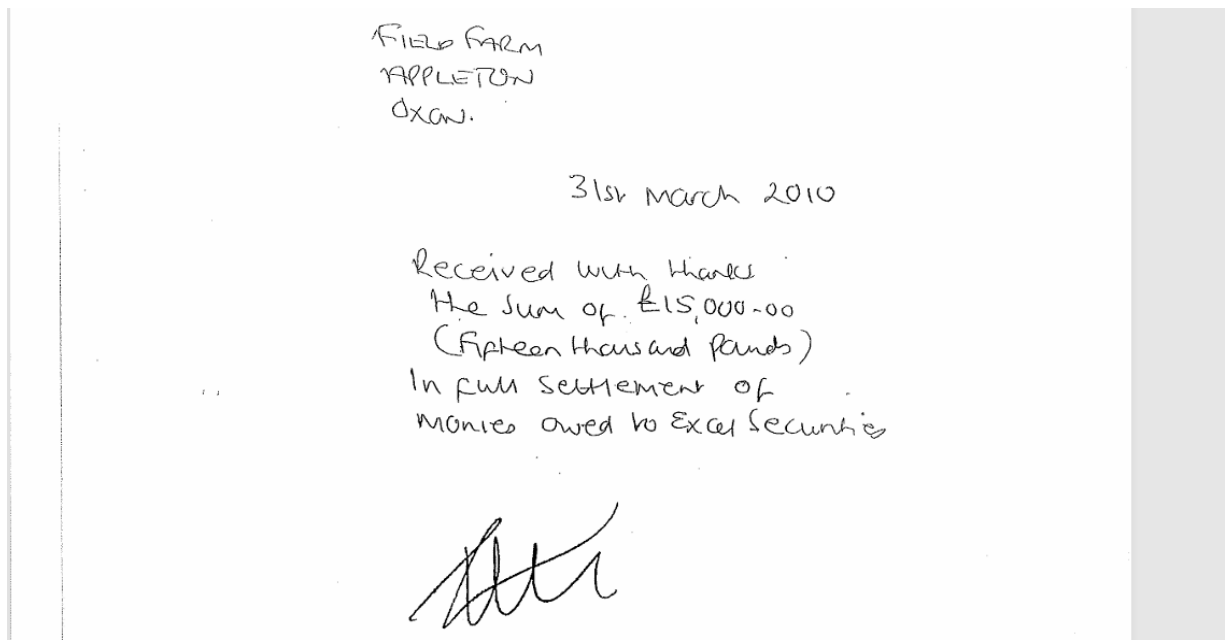 FIELD FARM
APPLETON
OXON.
31st March 2010
Received with thanks
the sum of £15,000-00
(Fifteen thousand pounds)
In full settlement of
monies owed to Excel Securities